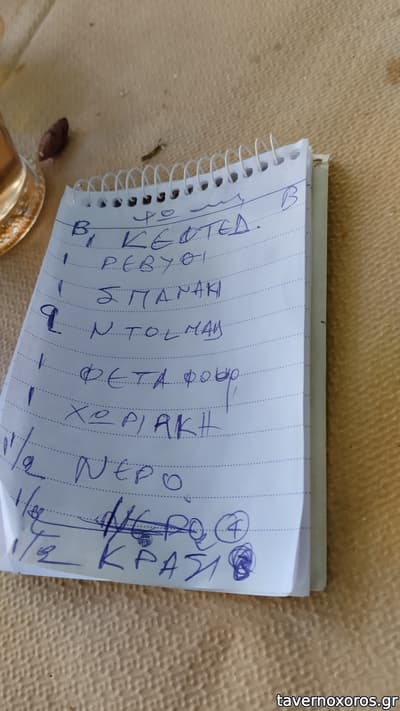 Β Β
1 ΚΕΦΤΕΔ.
1 ΡΕΒΥΘΙ
1 ΣΠΑΝΑΚΙ
2 ΝΤΟLΜΑΔ
1 ΦΕΤΑ φουρ
1 ΧΩΡΙΑΚΗ
1/2 ΝΕΡΟ
1/2 ΝΕΡΟ 4
1/2 ΚΡΑΣΙ
tavernoxoros.gr